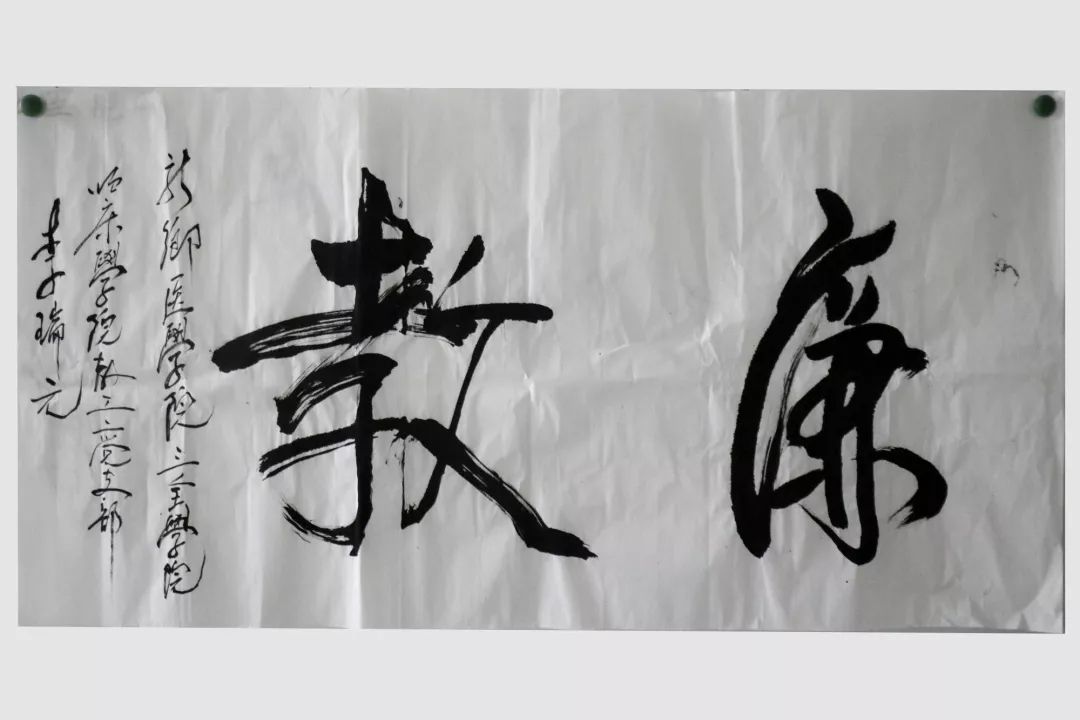 廉教
新鄉医學院三全學院
临床學院教工党支部
李瑞元